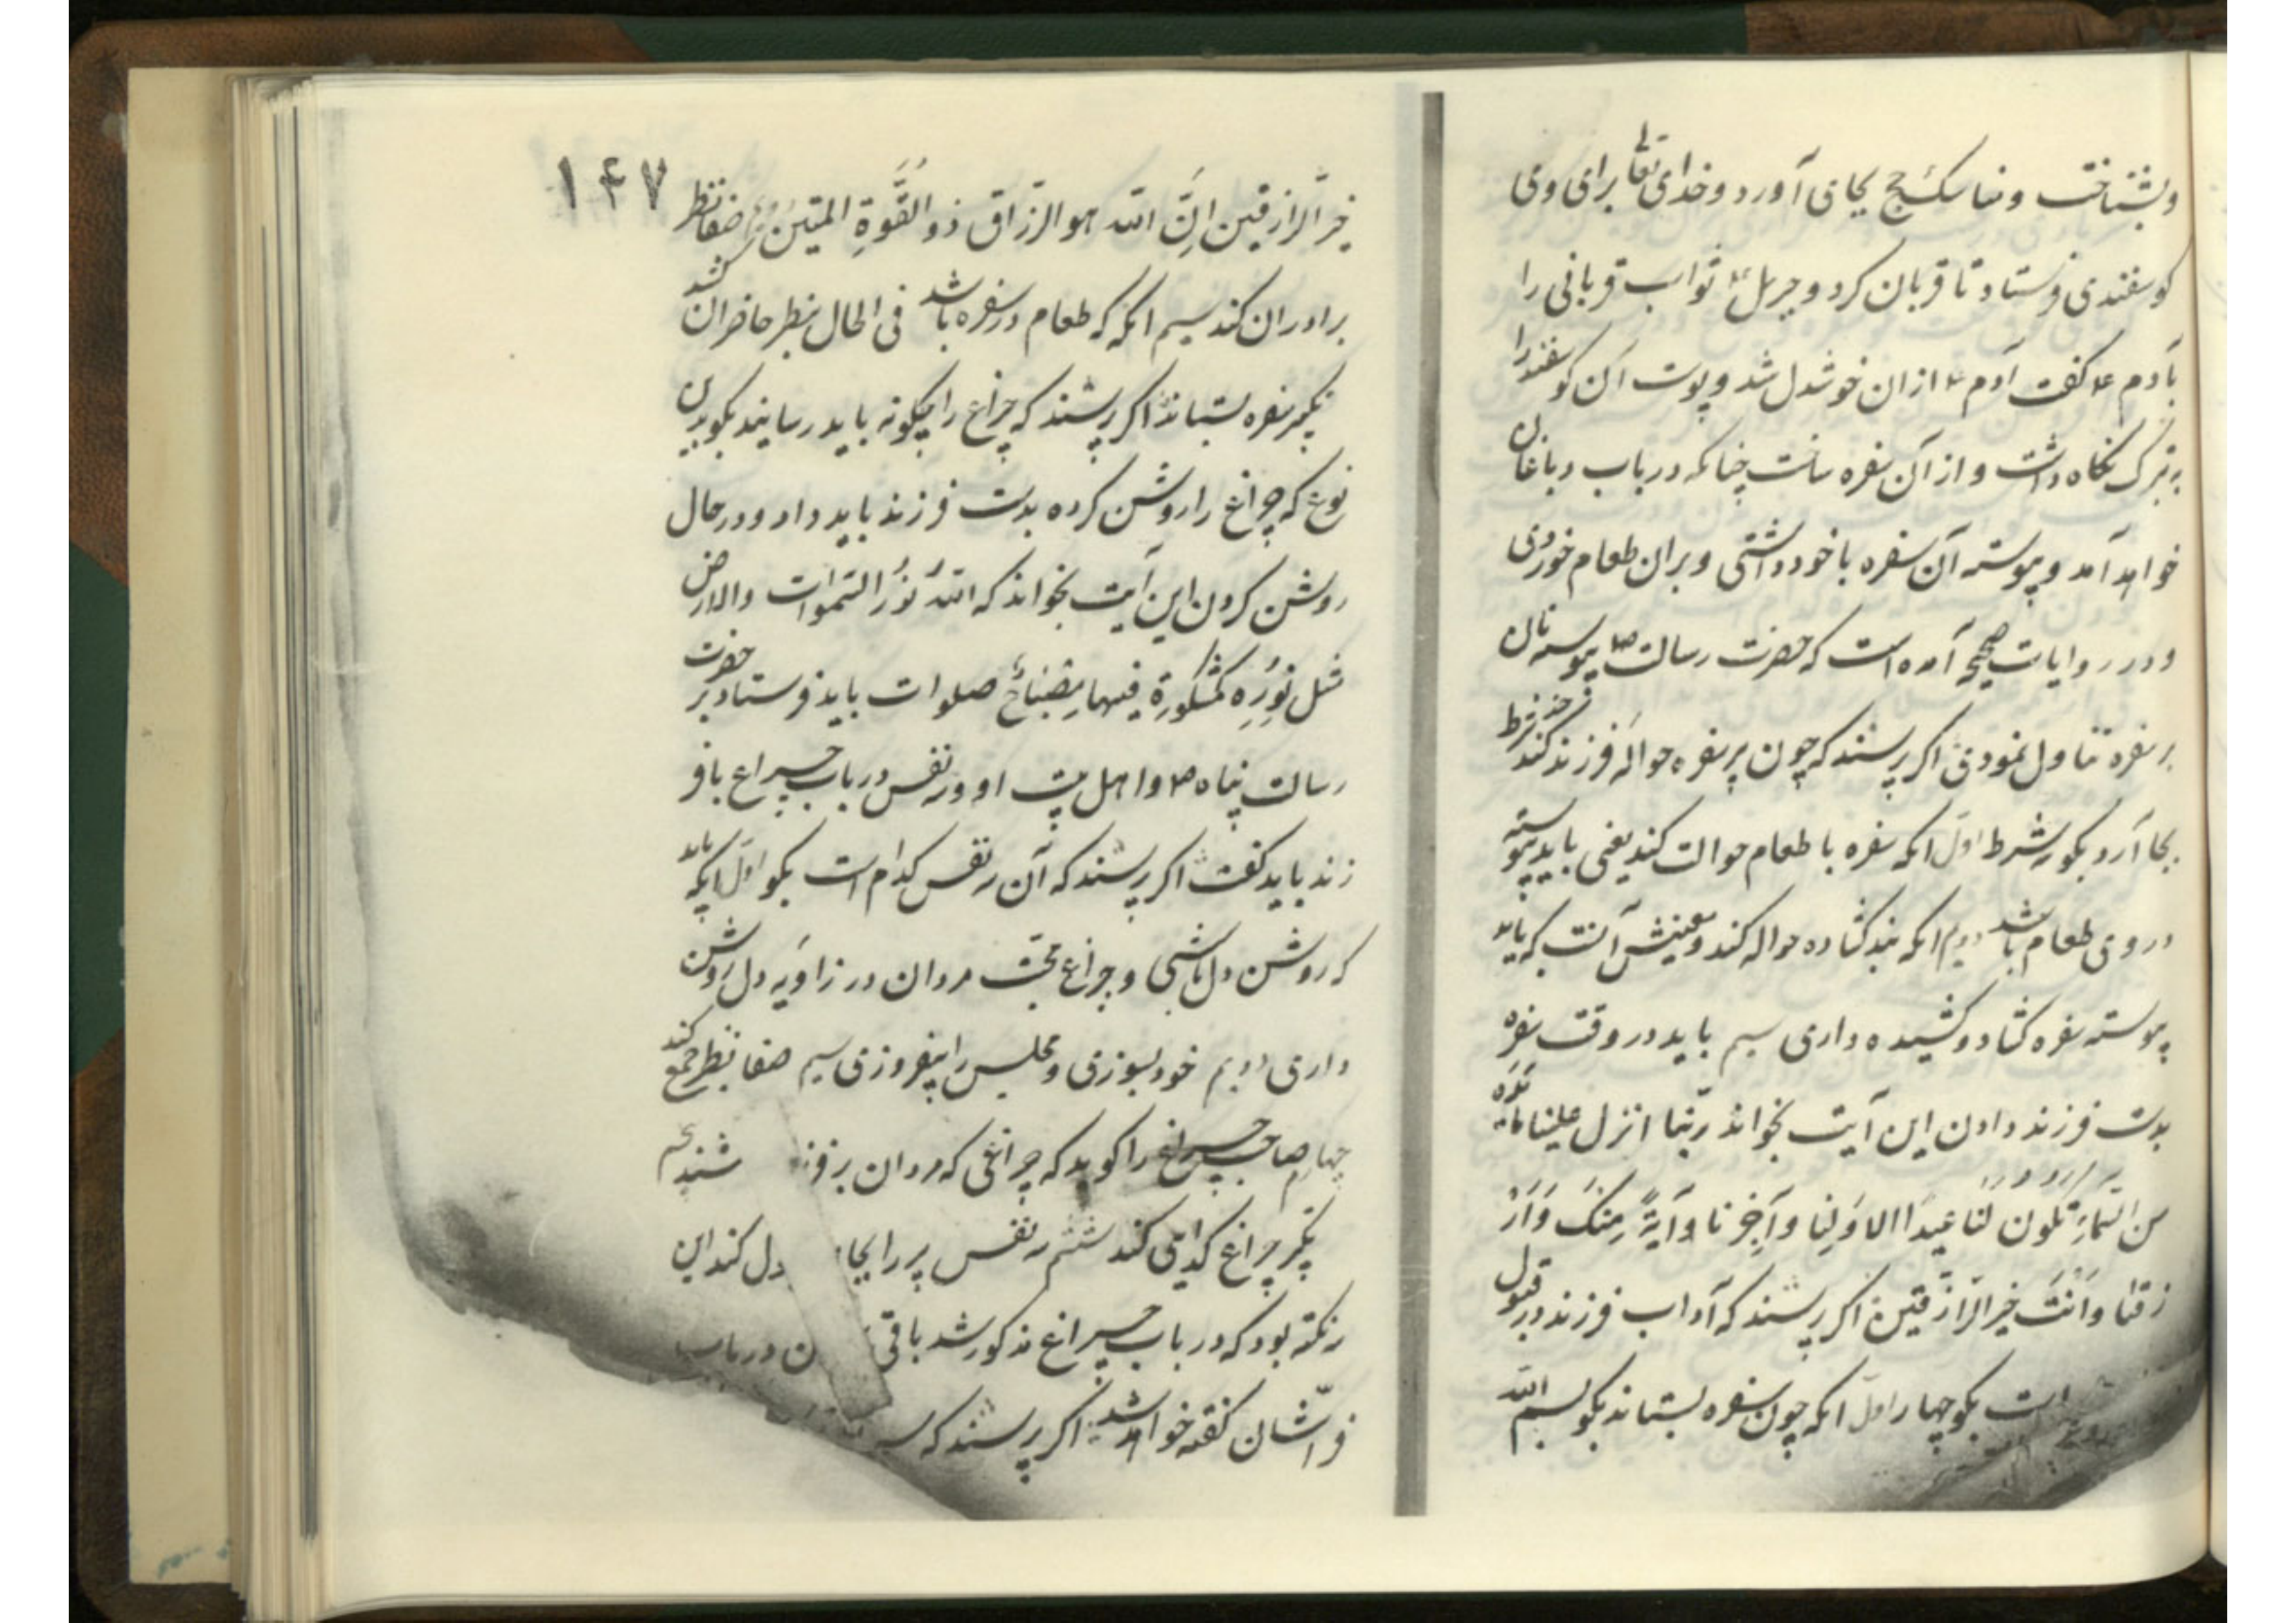 وبشناخت و مناسک حج بجای آورد و خدای تعالی برای وی
کوسفندی فرستاد تا قربان کرد و جبرئل ثواب قربانی را
بآدم ع کفت آدم ع ازان خوشدل شد و پوست آن کوسفند را
به تبرک نکاه داشت و از آن سفره ساخت چنانکه در باب دباغان
خواهد آمد و پیوسته آن سفره با خود داشتی و بران طعام خوردی
و در روایات صحیحه آمده است که حضرت رسالت ص پیوسته نان
بر سفره تناول نمودی اکر پرسند که چون پر سفره حواله فرزند کند چند شرط
بجا آرد بکو سه شرط اول انکه سفره با طعام حوالت کند یعنی باید پیوسته
در وی طعام باشد دویم انکه بند کشاده حواله کند و معنیش آنست که باید
پیوسته سفره کشاد و کشیده داری سیم باید در وقت سفره
بدست فرزند دادن این آیت بخواند ربّنا انزل علینا مائدة
من السّماءِ تکُونُ لنَا عیدًا لاوّلِنا وآخِرِنا وآیَةً مِنکَ وَارْ
زقنا وَانْتَ خیر الرّازقین اکر پرسند که آداب فرزند در قبول
است بکو چهار اول انکه چون سفره بستاند بکوید بسم الله
۱۴۷
خیر الرّازقین اِنَّ الله هو الرزّاق ذو القُوّةِ المتین دویم صفا نظر
برادران کند سیم انکه که طعام در سفره باشد فی الحال بنظر حاضران کشد
بکیر سفره بستاند اکر پرسند که چراغ را چکونه باید رسانید بکو بدین
نوع که چراغ را روشن کرده بدست فرزند باید داد و در حال
روشن کردن این آیت بخواند که اللهُ نُورُ السّموات والارض
مثل نُورِه کمشکوةِ فیها مِصْبَاحٌ صلوات باید فرستاد بر حضرت
رسالت پناه ص و اهل بیت او و سه نفس در باب چراغ با فر
زند باید کفت اکر پرسند که آن سه نفس کدام است بکو اول انکه باید
که روشن دل باشی و چراغ محبت مردان در زاویه دل روشن
داری دویم خود بسوزی و مجلس را بیفروزی سیم صفا نظر جمع کند
چهارم صاحب چراغ را کوید که چراغی که مردان برفر شنید
تکبر چراغ کدامی کند ششم سه نفس پر را بجا دل کند این
نکته بود که در باب چراغ مذکور شد باقی ن در باب
فرّاشان کفته خواهد شد اکر پرسند که